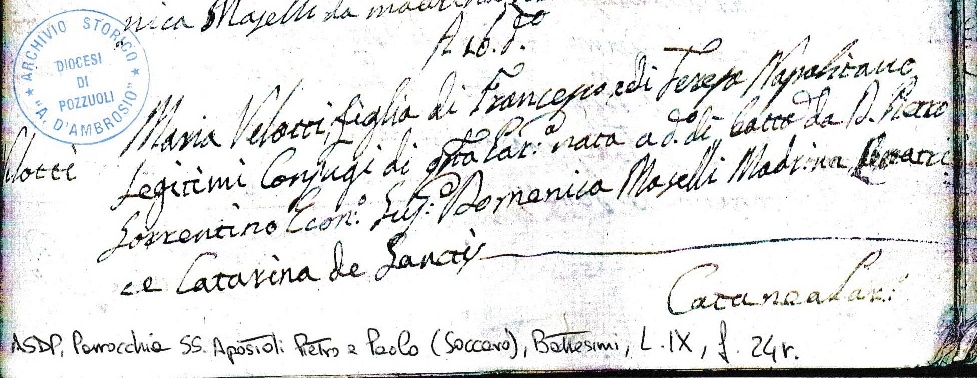 nica Maselli da madrina
A 10. do
ARCHIVIO STORICO
DIOCESI
DI
POZZUOLI
"A. D'AMBROSIO"
Maria Velotti figlia di Francesco, e di Teresa Napolitano
lotti
Legitimi Conjugi di qta Par: nata a do: di batta da D. Pietro
Sorrentino Econ.o Sud.o Domenica Maselli Madrina
ce Catarina de Sanctis
ASDP, Parrocchia SS. Apostoli Pietro e Paolo (Soccavo), Battesimi, L. IX, f. 24r.